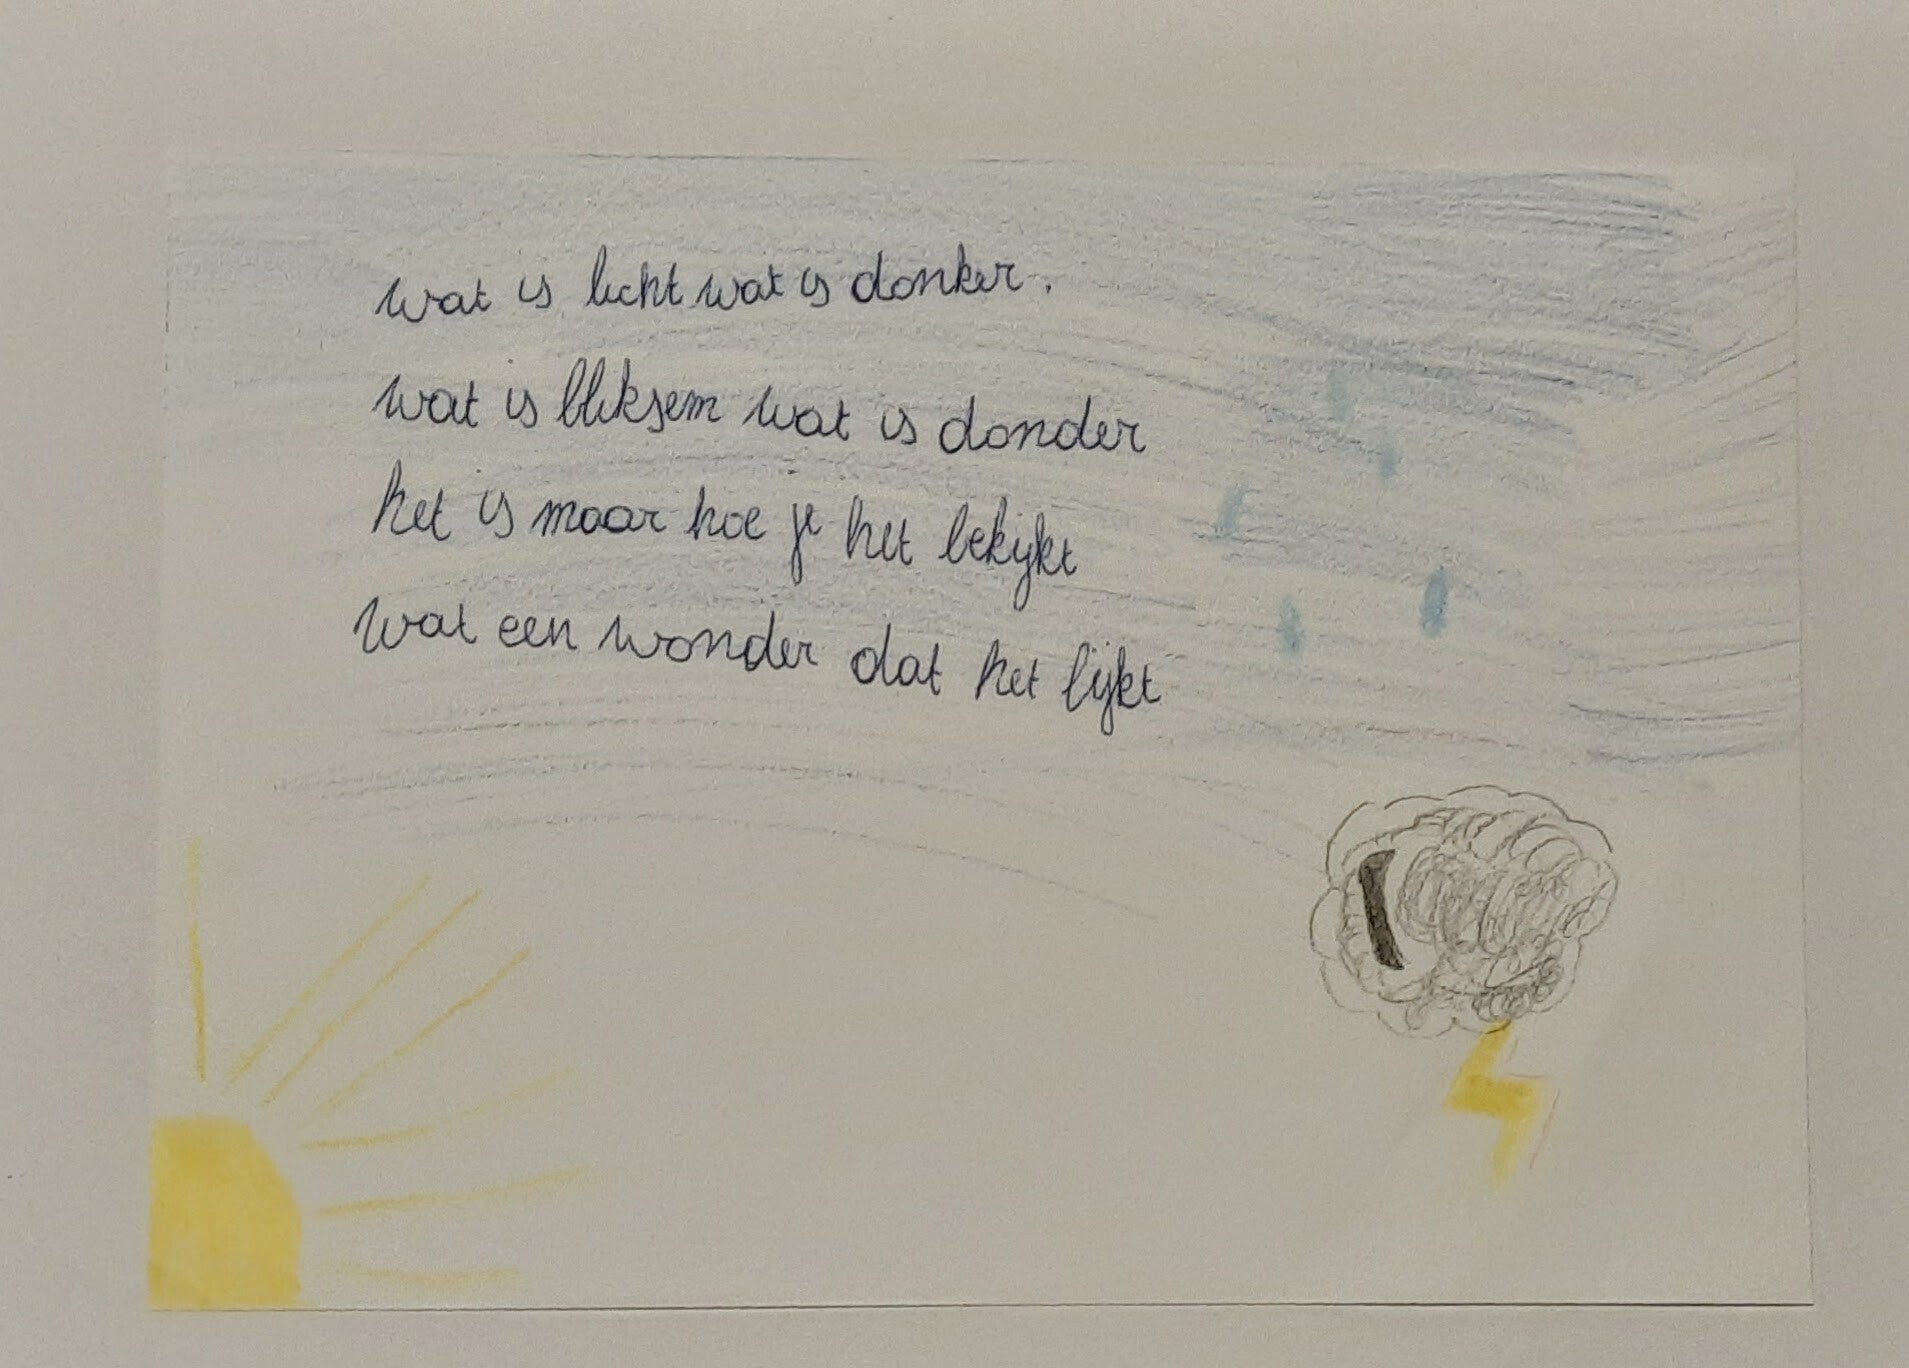 wat is licht wat is donker.
wat is bliksem wat is donder
het is maar hoe je het bekijkt
wat een wonder dat het lijkt